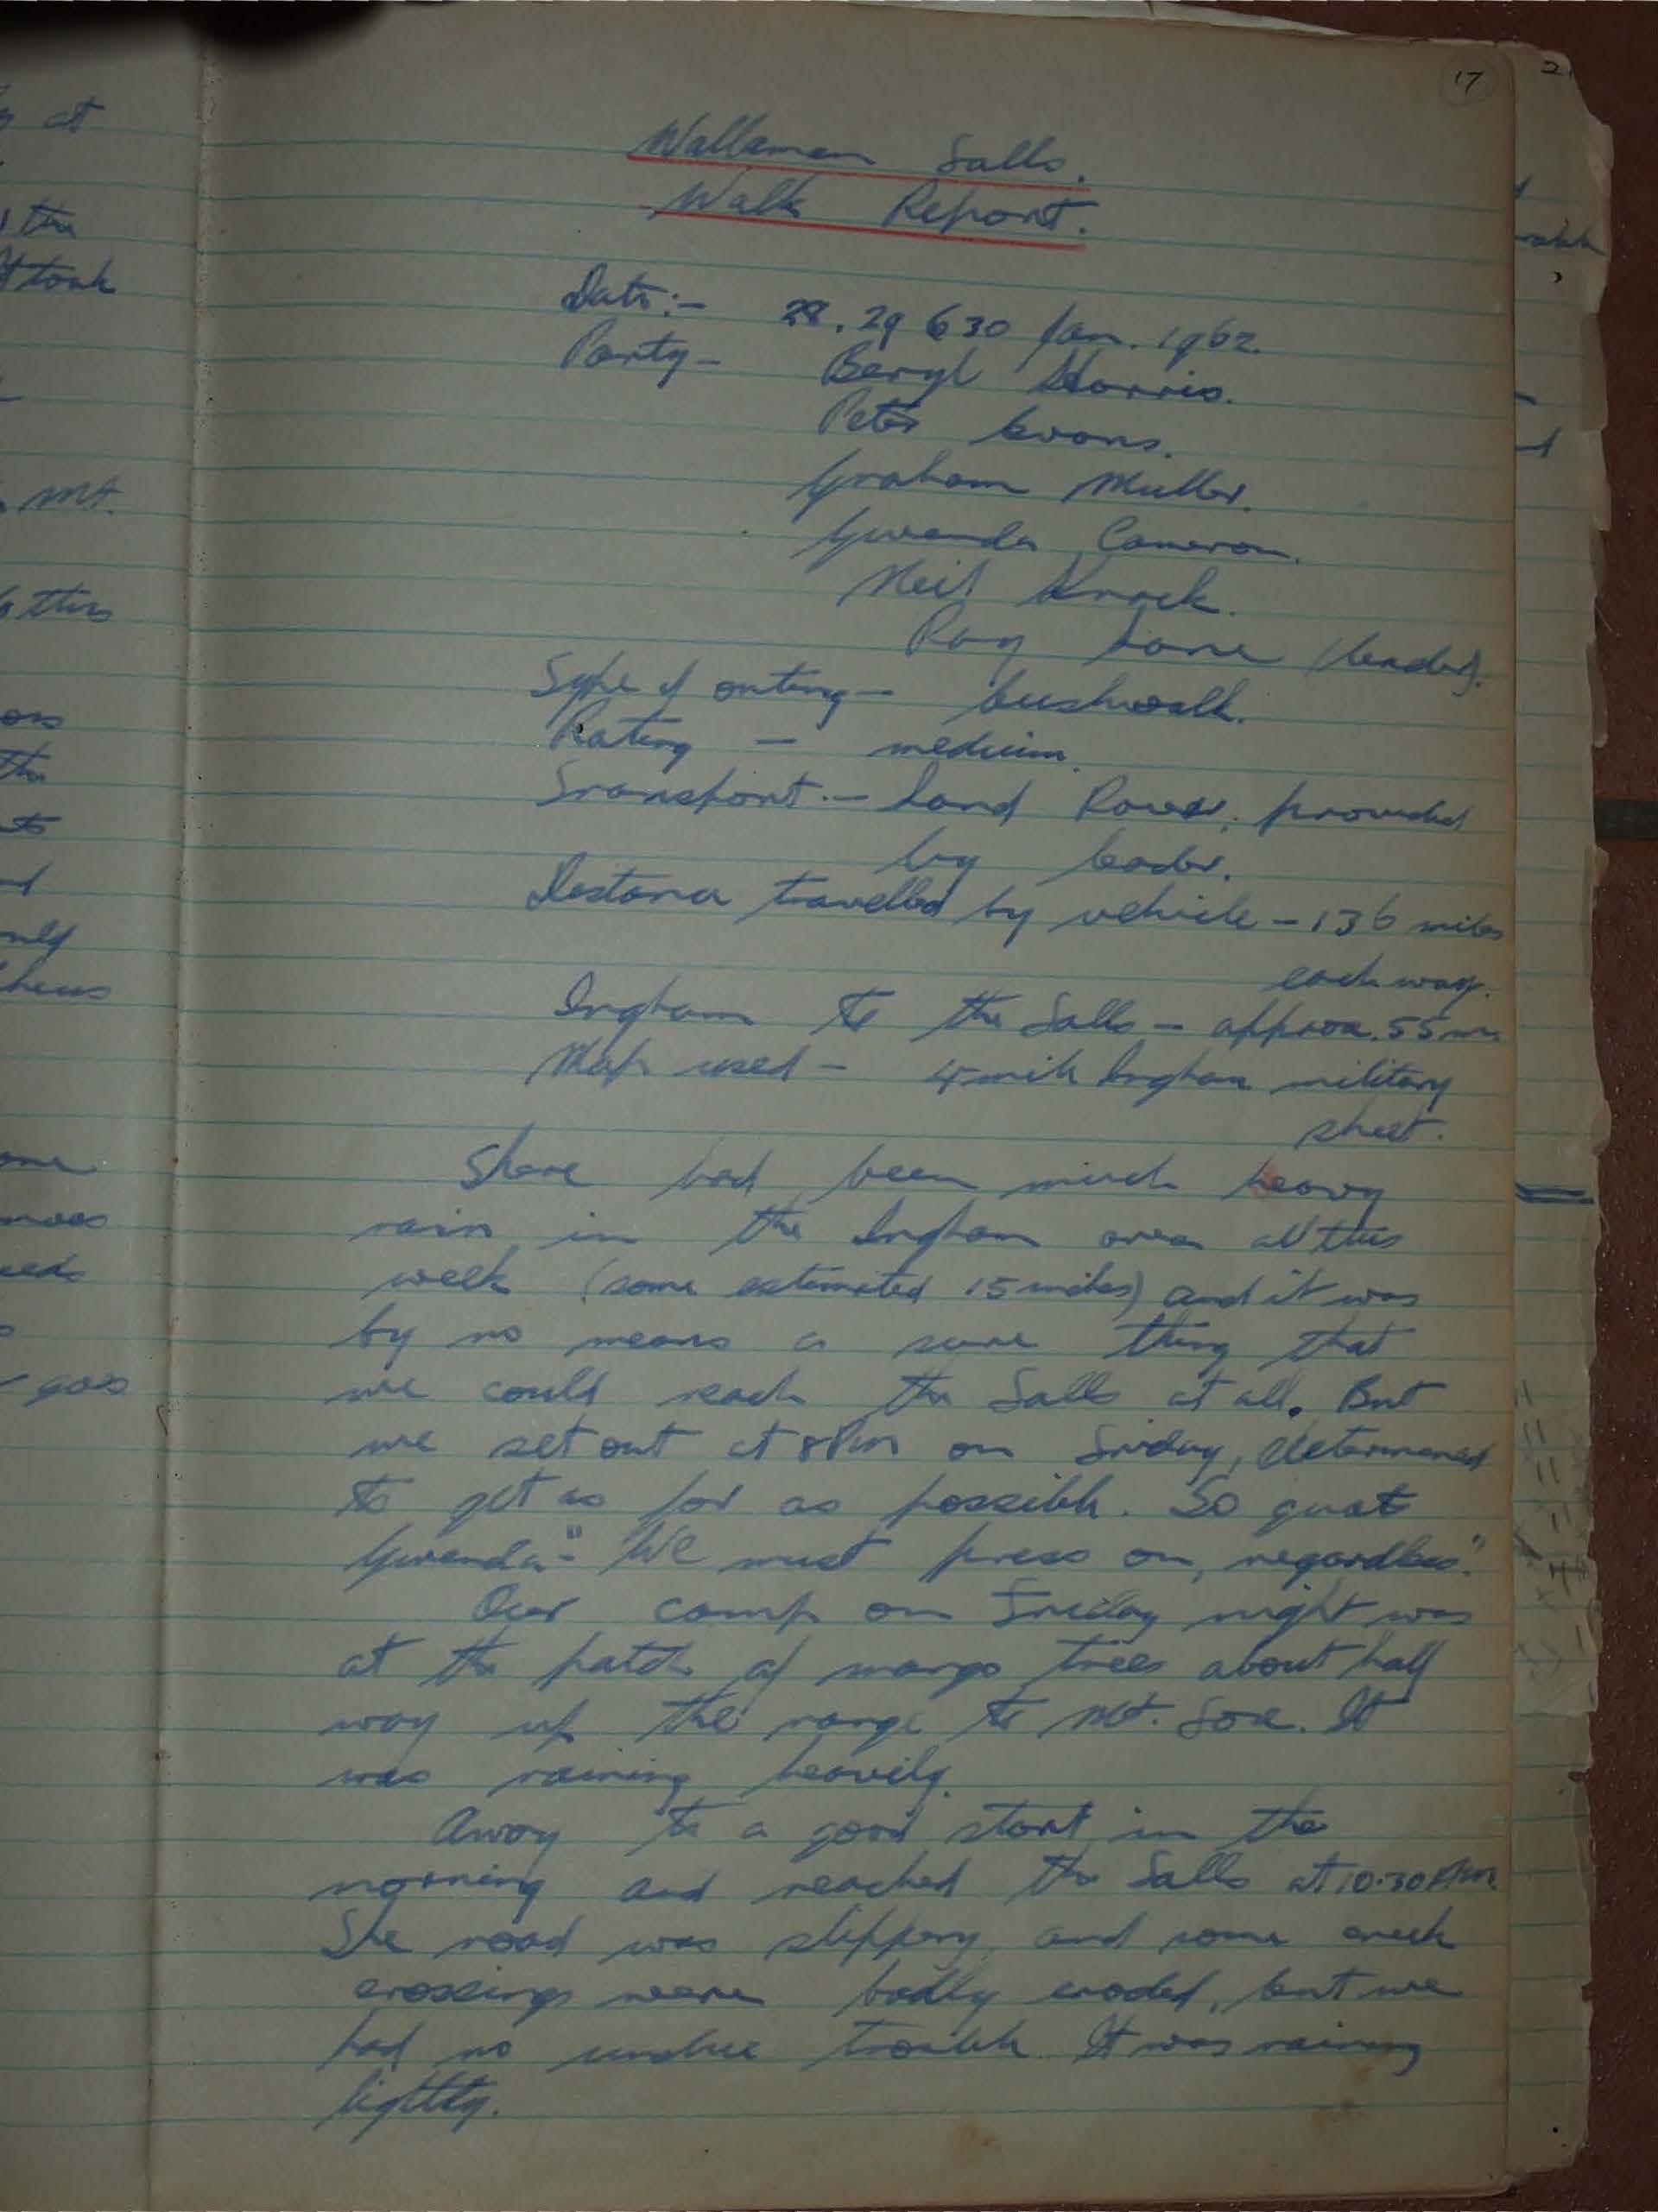 at
17
2
the
Wallaman Falls.
Walk Report.
took
Date:- 28, 29 & 30 Jan. 1962.
Party- Beryl Harris.
Peter Evans.
Graham Muller.
Mt.
Gwenda Cameron.
Neil Knack.
Ray Lane (leader).
Type of outing - bushwalk.
Rating - medium.
the
Transport.- Land Rover, provided
by leader.
Distance travelled by vehicle - 136 miles
each way.
Ingham to the Falls - approx. 55m.
Map used - 4 mile Ingham military
sheet.
There had been much heavy
rain in the Ingham area all this
week (some estimated 15 inches) and it was
by no means a sure thing that
gas
we could reach the Falls at all. But
we set out at 8 PM on Friday, determined
to get as far as possible. So quot
Gwenda-"We must press on, regardless".
Our camp on Friday night was
at the patch of mango trees about half
way up the range to Mt. Fox. It
was raining heavily.
Away to a good start in the
morning and reached the Falls at 10.30 AM.
The road was slippery, and some creek
crossings were badly eroded, but we
had no undue trouble. It was raining
lightly.